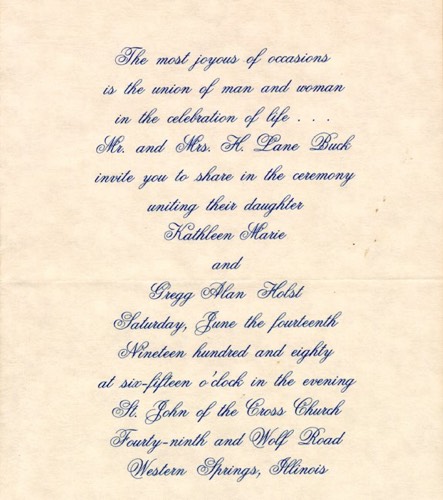 The most joyous of occasions
is the union of man and woman
in the celebration of life . . .
Mr. and Mrs. H. Lane Buck
invite you to share in the ceremony
uniting their daughter
Kathleen Marie
and
Gregg Alan Holst
Saturday, June the fourteenth
Nineteen hundred and eighty
at six-fifteen o'clock in the evening
St. John of the Cross Church
Fourty-ninth and Wolf Road
Western Springs, Illinois